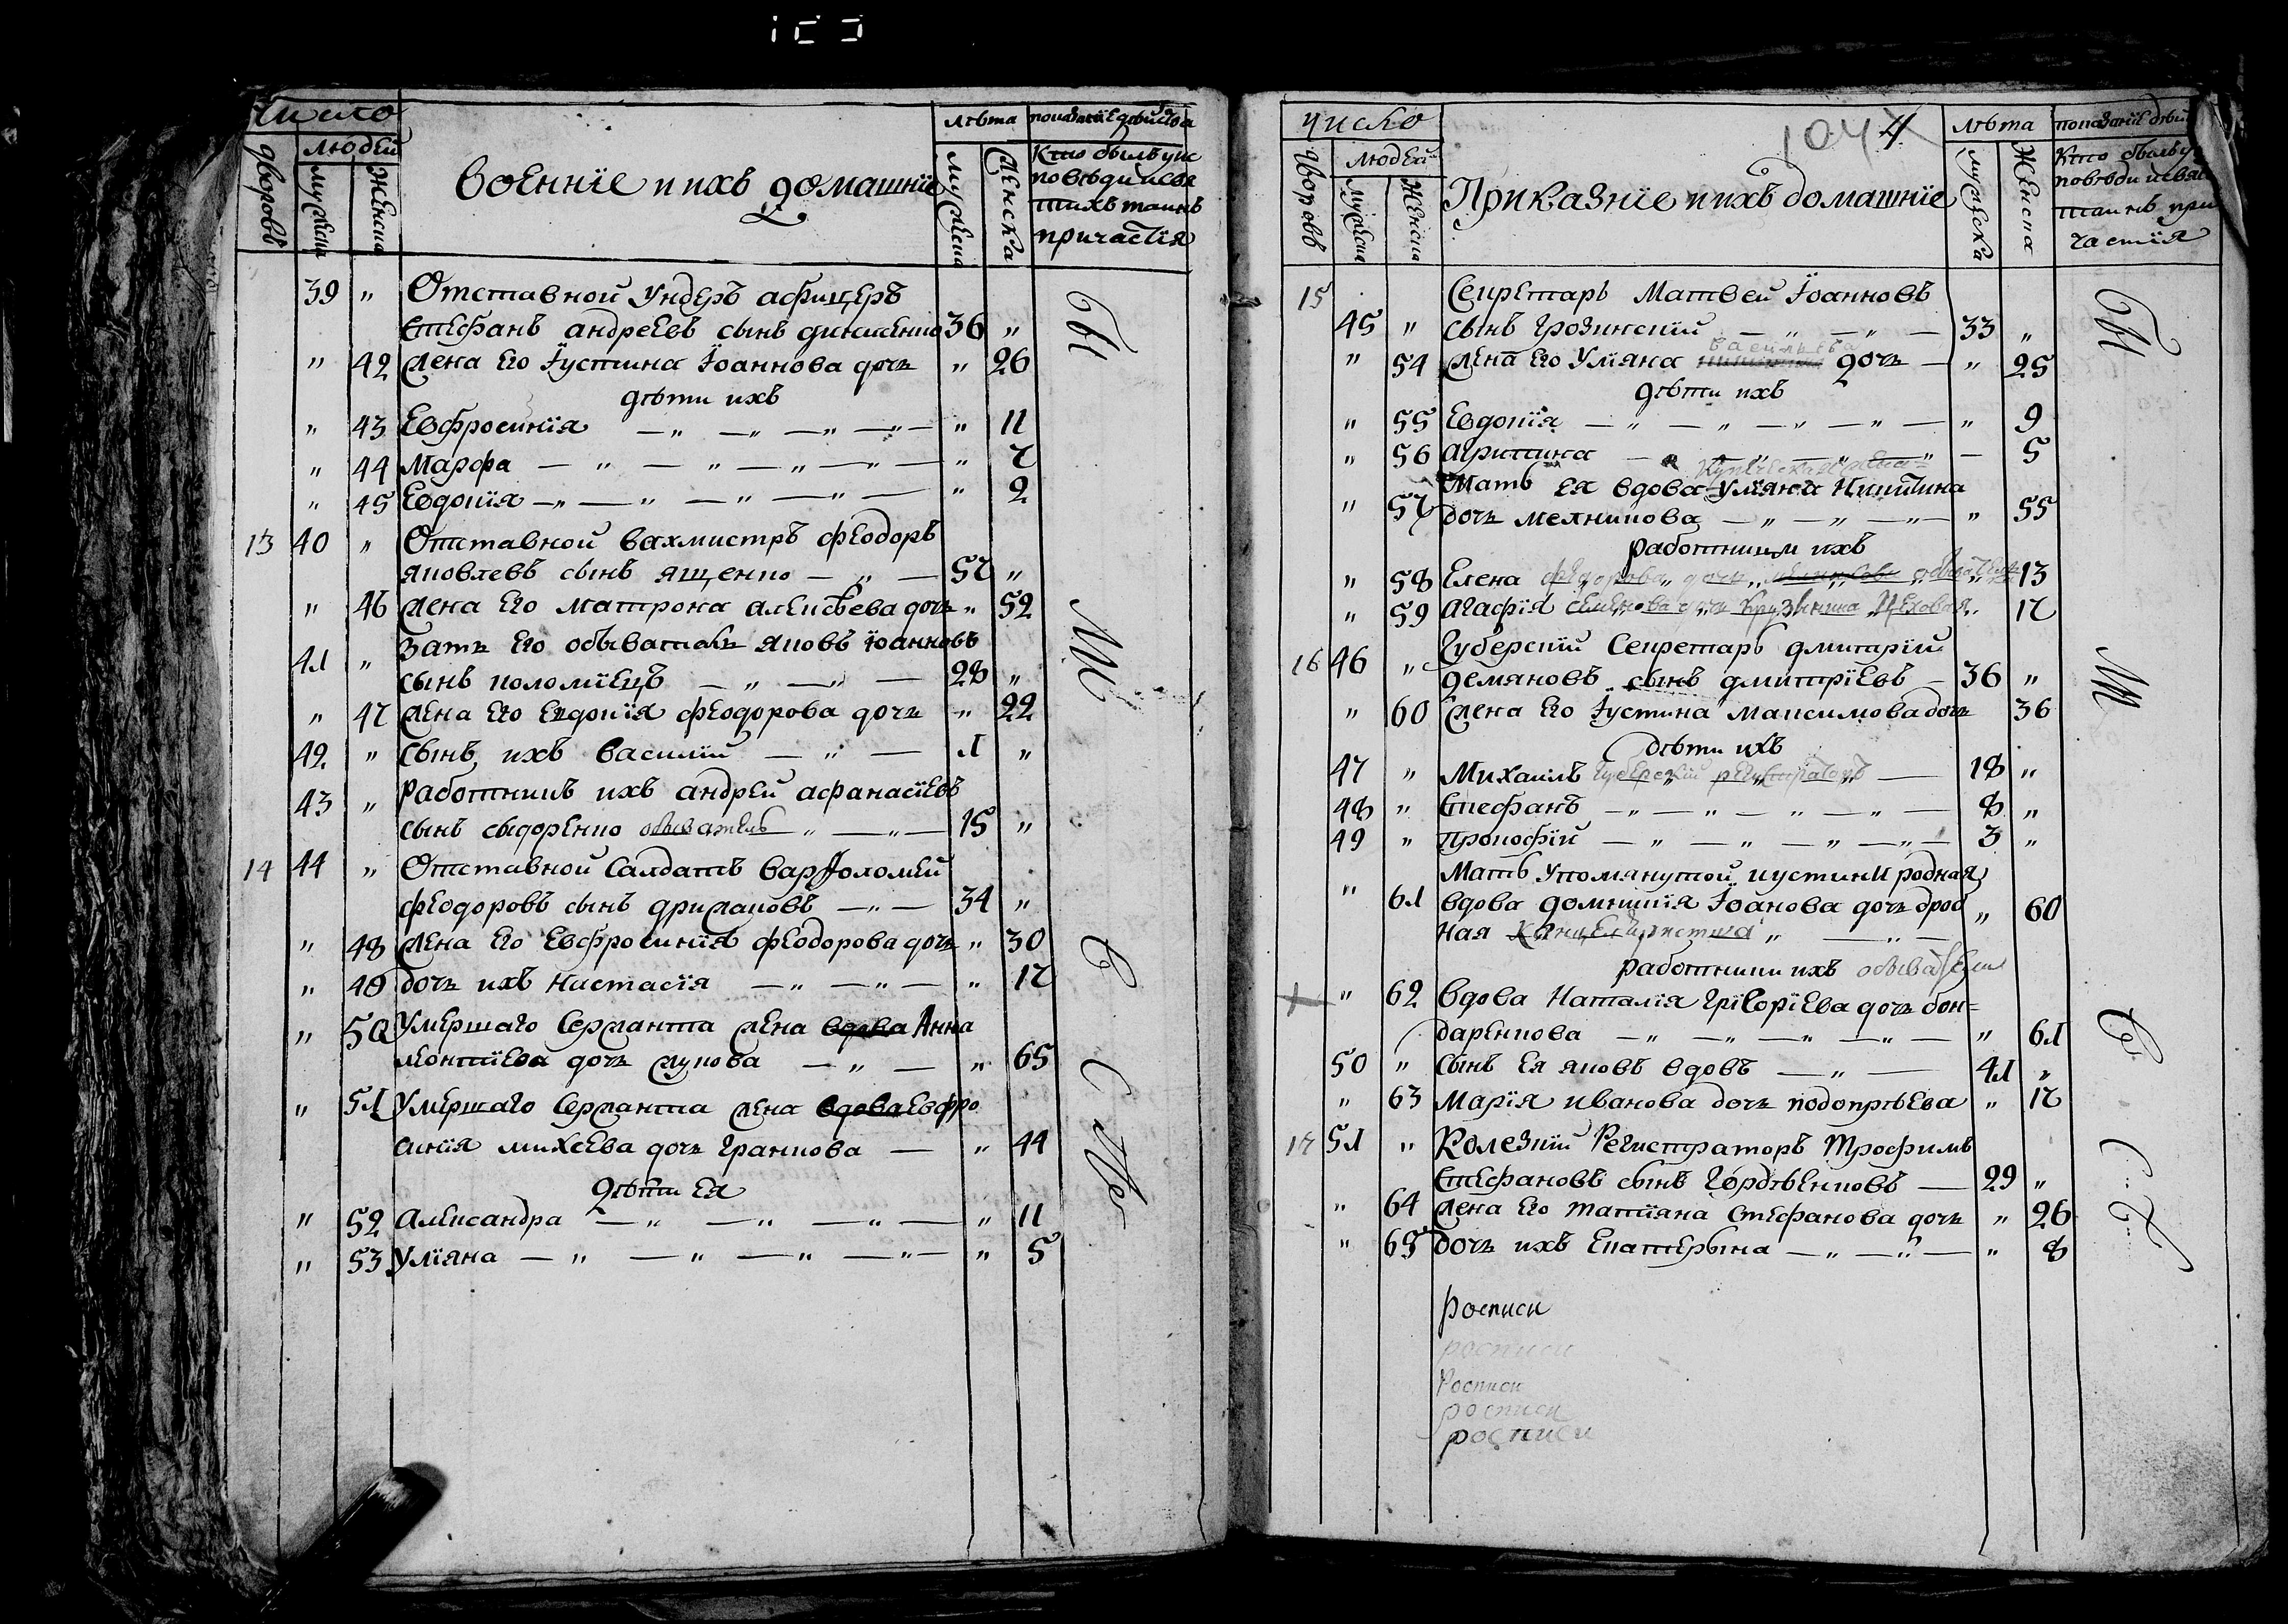 число
лѣта показанїе дѣйства
дворовъ
людей
мужеска
женска
военнїе и ихъ домашнїе
мужеска
женска
кто былъ у ис
повѣди и свя
тыхъ таинъ
причастїя
39 „ Отставной ундеръ афицеръ
стефанъ андреевъ сынъ 36 „
„ 42 жена его Їустина Їоаннова дочь „ 26
дѣти ихъ
„ 43 Евфросинїя — „ — „ — „ — „ — „ 11
„ 44 Марфа — „ — „ — „ — „ — „ 7
„ 45 Евдокїя — „ — „ — „ — „ — „ 2
13 40 „ Отставной вахмистръ феодоръ
яковлевъ сынъ ященко — „ — 57 „
„ 46 жена его матрона алексѣева дочь „ 52
41 „ зять его обыватель яковъ їоанновъ
сынъ коломїецъ — „ — „ — 28 „
„ 47 жена его евдокїя феодорова дочь „ 22
42 „ сынъ ихъ василїй — „ — 1 „
43 „ работникъ ихъ андрей афанасїевъ
сынъ сидоренко обыватель „ — „ — 15 „
14 44 „ Отставной салдатъ варфоломей
феодоровъ сынъ дрижаковъ — „ — 34 „
„ 48 жена его евфросинїя феодорова дочь „ 30
„ 49 дочь ихъ настасїя — „ — „ — „ 17
„ 50 умершаго сержанта жена вдова Анна
леонтїева дочь жукова — „ — „ 65
„ 51 умершаго сержанта жена вдова евфро
синїя михеева дочь гранкова — „ 44
дѣти ея
„ 52 александра — „ — „ — „ — „ 11
„ 53 улїяна — „ — „ — „ — „ — „ 5
число
1047 4
лѣта показанїе дѣй
дворовъ
людей
мужеска
женска
Приказнїе и ихъ домашнїе
мужеска
женска
кто былъ у
повѣди и свят
таинъ при
частїя
15 Секретарь Матвей Їоанновъ
45 „ сынъ грозинскїй — „ — „ — 33 „
васильева
„ 54 жена его улїяна дочь — „ 25
дѣти ихъ
„ 55 Евдокїя — „ — „ — „ — „ — „ 9
„ 56 агрипина — „ — „ — 5
купеческая жена
мать ея вдова улїяна никитина
„ 57 дочь мелникова — „ — „ — „ — „ 55
работницы ихъ
„ 58 Елена федорова дочь 13
„ 59 агафїя семенова дочь цеховая „ 17
16 46 „ губерскїй секретарь дмитрїй
демяновъ сынъ дмитрїевъ — 36 „
„ 60 жена его їустина максимова дочь 36
дѣти ихъ
47 „ Михаилъ губерскїй регистраторъ — 18 „
48 „ стефанъ — „ — „ — „ — „ — 8 „
49 „ прокофїй — „ — „ — „ — „ — 3 „
мать упомянутой иустини родная
„ 61 вдова домникїя Їоанова дочь дроб „ 60
ная канцеляристша „ — „ —
работники ихъ обыватели
„ 62 вдова наталїя григорїева дочь бон=
даренкова — „ — „ — „ — „ — „ 61
50 „ сынъ ея яковъ вдовъ — „ — 41 „
„ 63 марїя иванова дочь подопрѣева „ 17
17 51 „ колезкїй регистраторъ трофимъ
стефановъ сынъ гордѣенковъ — 29 „
„ 64 жена его татїяна стефанова дочь „ 26
„ 65 дочь ихъ екатерына — „ — „ — „ 8
росписи
росписи
росписи
росписи
росписи